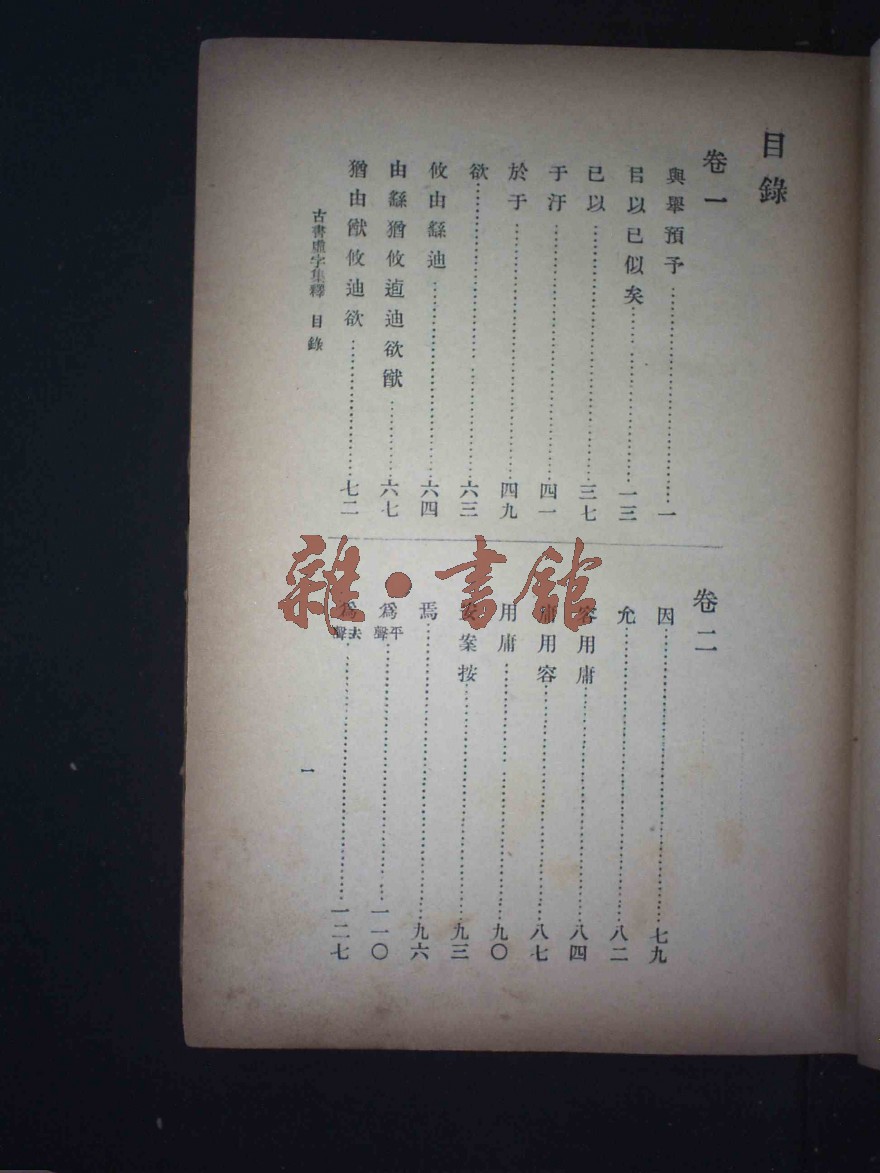 目錄
卷一
與舉預予……一
㠯以已似矣……一三
已以……三七
于汙……四一
於于……四九
欲……六三
攸由繇迪……六四
由繇猶攸逌迪欲猷……六七
猶由猷攸迪欲……七二
卷二
因……七九
允……八二
容用庸……八四
庸用容……八七
用庸……九〇
安案按……九三
焉……九六
爲平聲……一一〇
爲去聲……一二七
古書虛字集釋 目錄
一
雜·書館